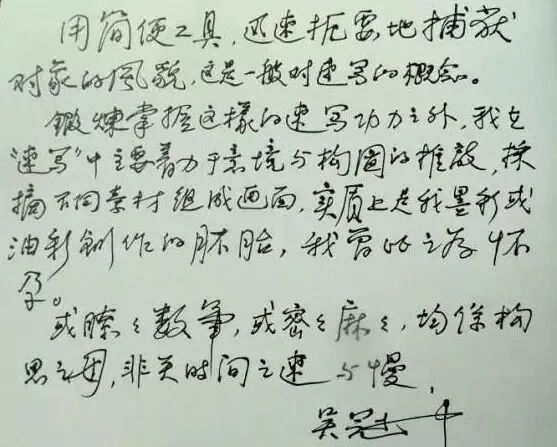 用简便工具，迅速扼要地捕获
对象的风貌，这是一般对速写的概念。
锻炼掌握这样的速写功力之外，我在
“速写”中主要着力于意境与构圖的推敲，採
摘不同素材组成画面，实质上是我墨彩或
油彩創作的胚胎，我曾因之存怀
孕。
或瞭々数筆，或密々麻々，均係构
思之母，非关时间之速与慢，
吴冠中